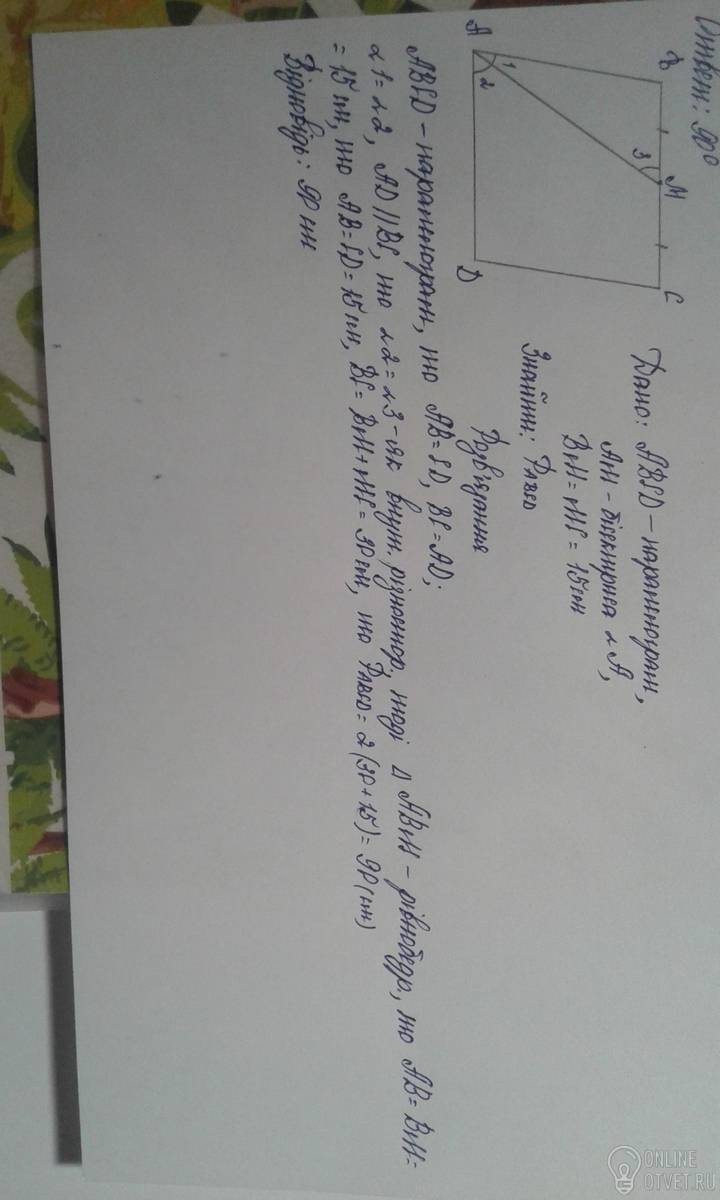 Ответ: 90°
B M C
3
1
2
A D
Дано: ABCD – паралелограм,
AM – бісектриса ∠A,
BM = MC = 15 см
Знайти: P ABCD
Розв'язання
ABCD – паралелограм, то AB = CD, BC = AD;
∠1 = ∠2, AD || BC, то ∠2 = ∠3 – як внут. різностор, тоді Δ ABM – рівнобедр, то AB = BM =
= 15 см, то AB = CD = 15 см, BC = BM + MC = 30 см, то P ABCD = 2 (30 + 15) = 90 (см)
Відповідь: 90 см
ONLINE
OTVET.RU